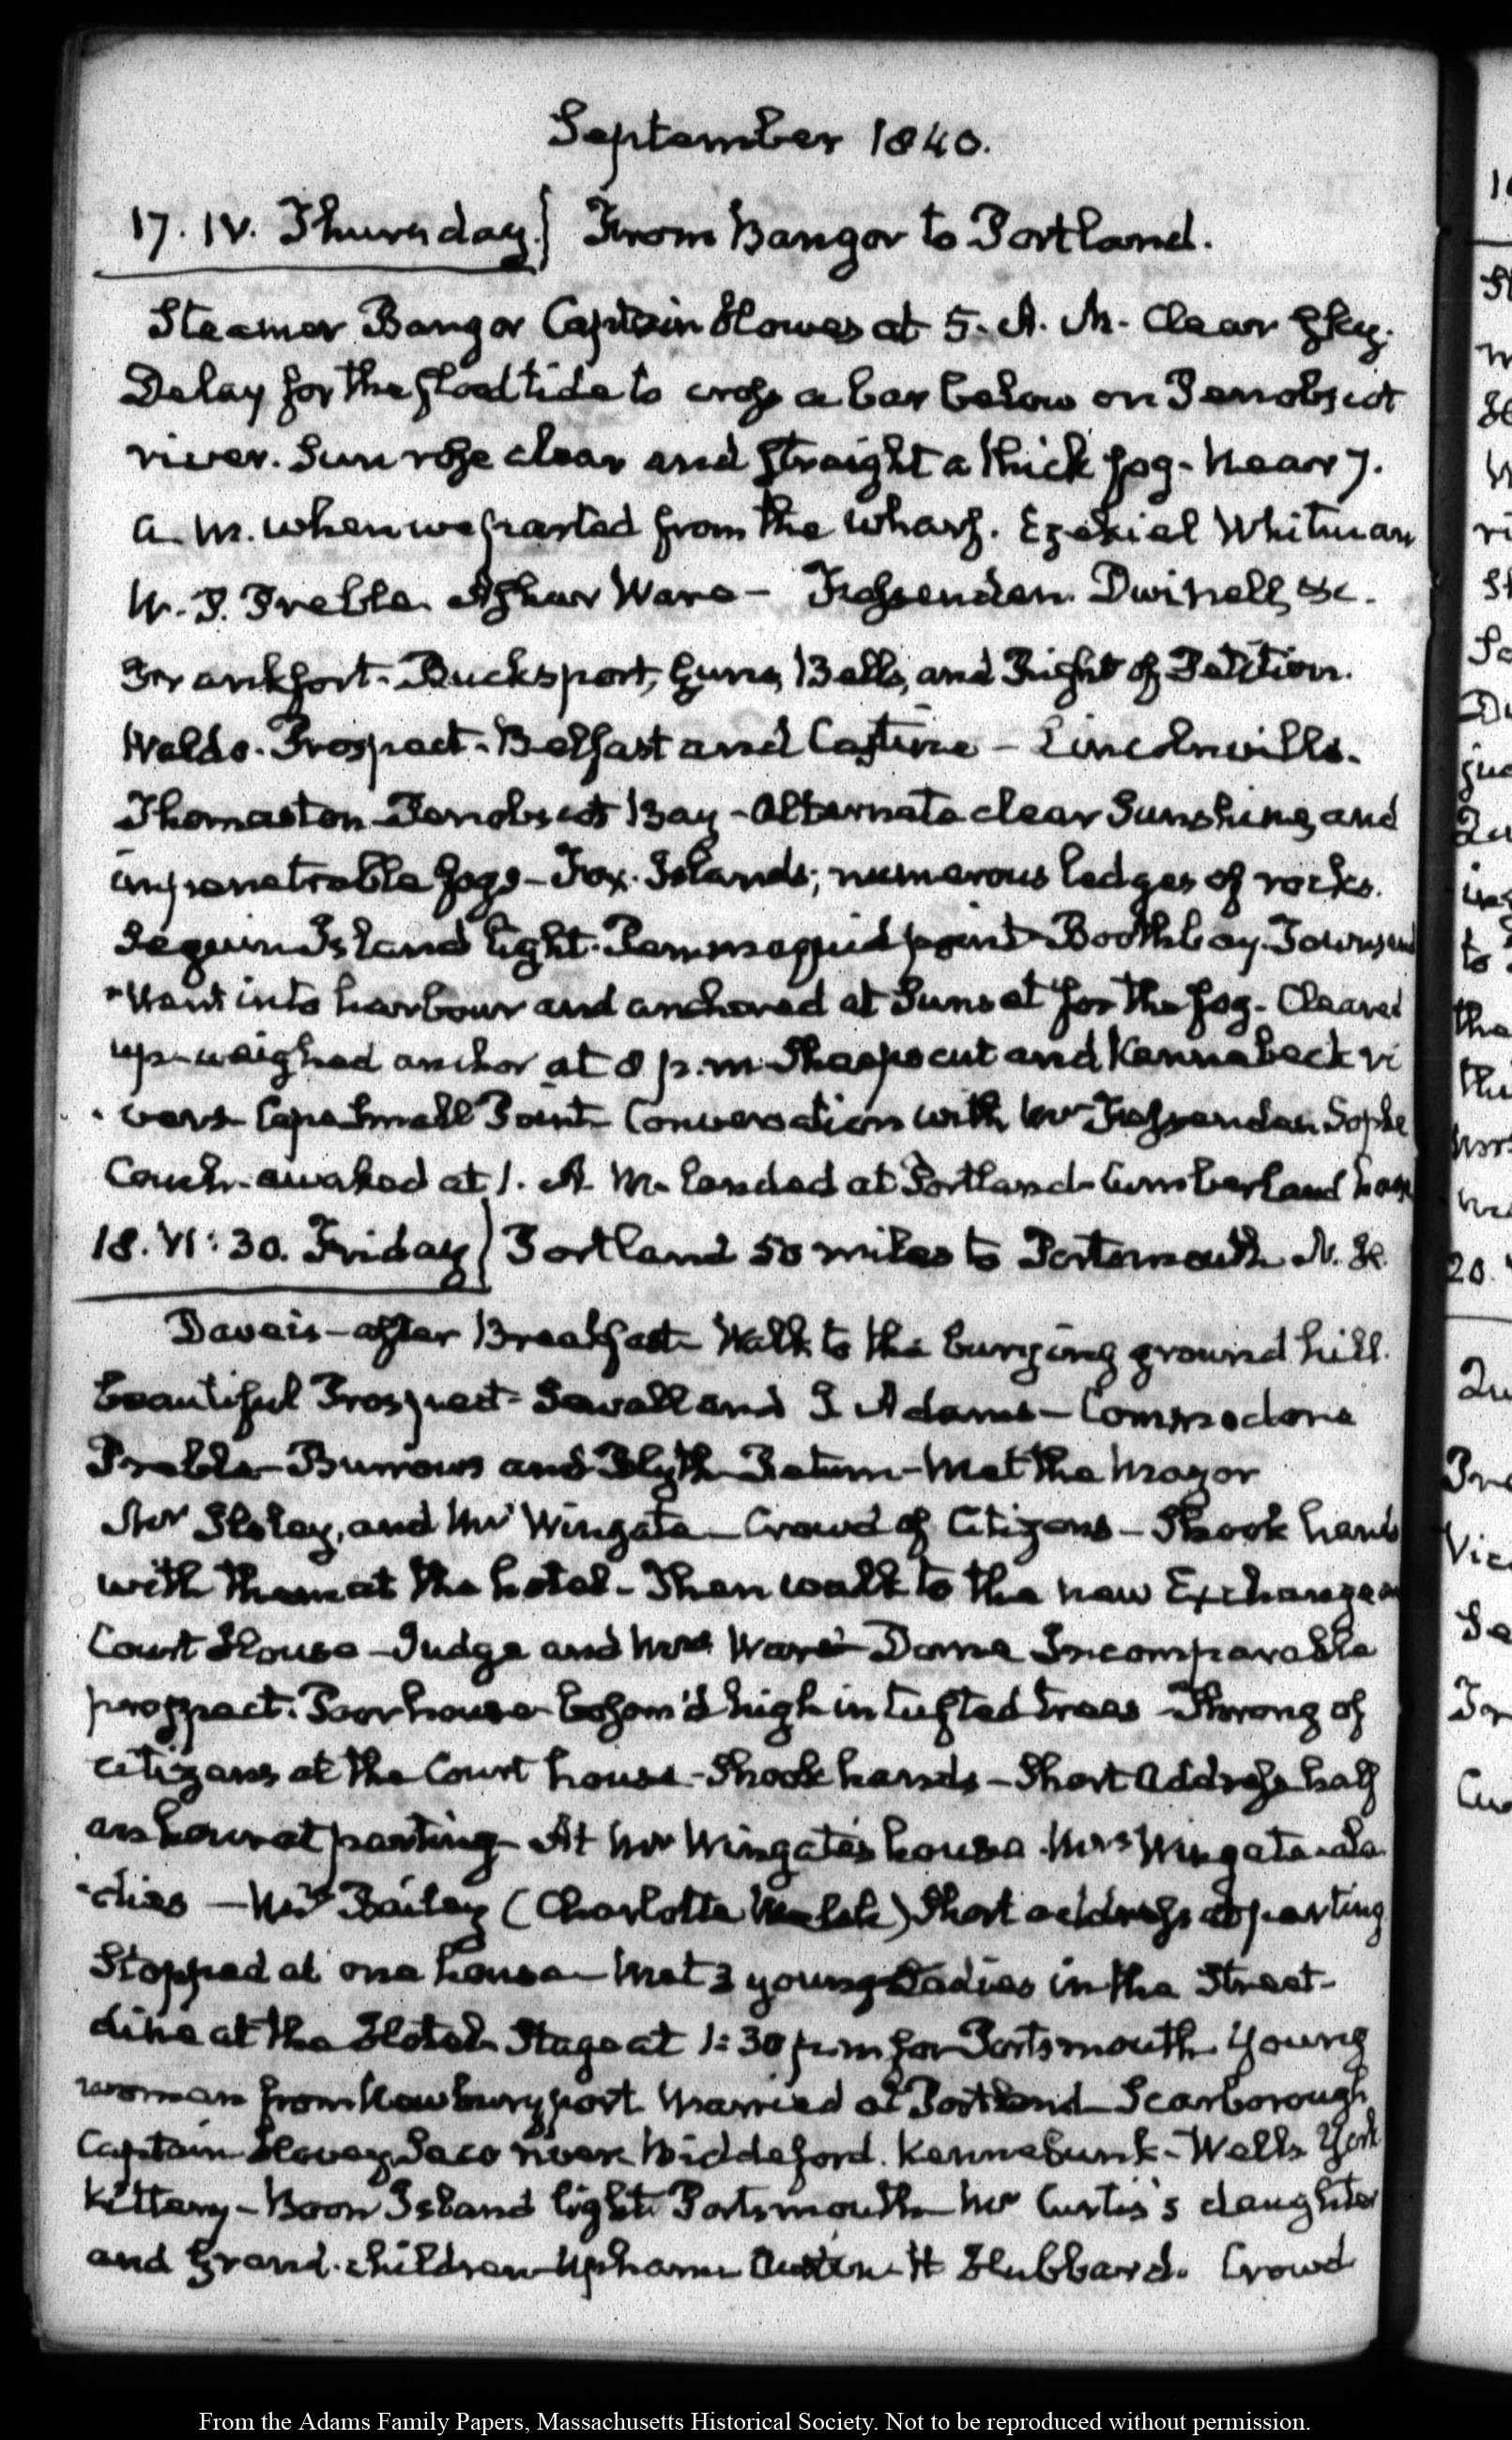 September 1840.
17. IV. Thursday.} From Bangor to Portland.
Steamer Bangor Captain Howes at 5. A. M. Clear sky.
Delay for the flood tide to cross a bar below on Penobscot
river. Sun rose clear and straight a thick fog - Near 7.
a. m. when we parted from the wharf. Ezekiel Whitman
W. P. Preble. Ashur Ware - Fessenden. Dwinell, &c.
Frankfort - Bucksport, Guns, Bells, and Right of Petition.
Waldo - Prospect - Belfast and Castine - Lincolnville.
Thomaston - Penobscot Bay - Alternate clear Sunshine, and
impenetrable fogs - Fox Islands; numerous ledges of rocks.
Seguin Island light - Pemmaquid point - Boothbay - Townsend
Went into harbour and anchored at Sunset for the fog - Cleared
up - weighed anchor at 8 p.m. Sheepscut and Kennebeck ri
vers - Cape Small Point - Conversation with Mr Fessenden
Couch - awaked at 1. A. M. landed at Portland - Cumberland
18. VI: 30. Friday} Portland 50 miles to Portsmouth N. H.
Daveis - after Breakfast - Walk to the burying ground hill.
beautiful Prospect - Sewall and I Adams - Commodore
Preble - Burrows and Blyth - Return - Met the Mayor
Mr and Mr Wingate - Crowd of Citizens - Shook hands
with them at the hotel - Then walk to the new Exchange
Court House - Judge and Mrs Ware - Dome Incomparable
prospect. Poor house - bosom'd high in tufted trees - Throng of
citizens at the Court house - Shook hands - Short Address half
an hour at parting - At Mr Wingate's house. Mrs Wingate - la
dies - Mrs Bailey (Charlotte Welsh) Short address at parting
Stopped at one house - Met 3 young Ladies in the Street -
dine at the Hotel - Stage at 1:30 p.m for Portsmouth - Young
woman from Newburyport married at Portland - Scarborough
Captain Saco river Biddeford. Kennebunk - Wells York
Kittery - Boon Island light. Portsmouth - Mr Curtis's daughter
and Grand-children - Upham - Austin - H Hubbard. Crowd
From the Adams Family Papers, Massachusetts Historical Society. Not to be reproduced without permission.